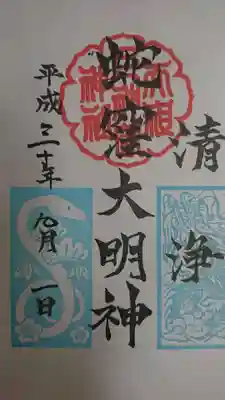 清浄
蛇窪大明神
平成三十年
九月一日